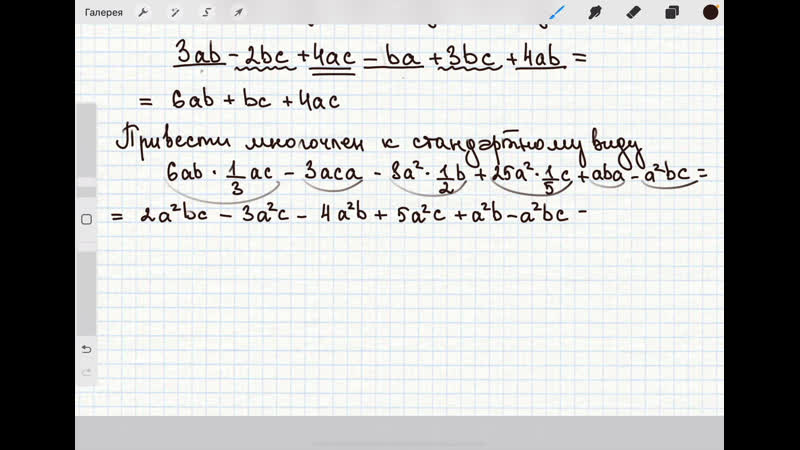 Галерея
3ab - 2bc + 4ac - ba + 3bc + 4ab =
= 6ab + bc + 4ac
Привести многочлен к стандартному виду
6ab · 1/3 ac - 3aca - 8a² · 1/2 b + 25a² · 1/5 c + aba - a²bc =
= 2a²bc - 3a²c - 4a²b + 5a²c + a²b - a²bc -